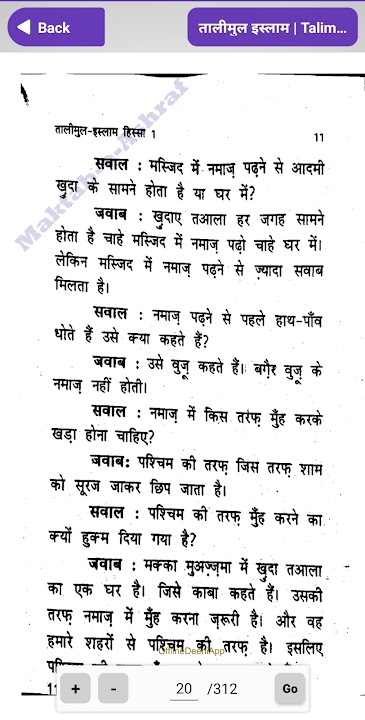 Back
तालीमुल इस्लाम | Talim...
Maktab-e-Ashraf
तालीमुल-इस्लाम हिस्सा 1
11
सवाल : मस्जिद में नमाज़ पढ़ने से आदमी
ख़ुदा के सामने होता है या घर में?
जवाब : ख़ुदाए तआला हर जगह सामने
होता है चाहे मस्जिद में नमाज़ पढ़ो चाहे घर में।
लेकिन मस्जिद में नमाज़ पढ़ने से ज़्यादा सवाब
मिलता है।
सवाल : नमाज़ पढ़ने से पहले हाथ-पाँव
धोते हैं उसे क्या कहते हैं?
जवाब : उसे वुज़ू कहते हैं। बग़ैर वुज़ू के
नमाज़ नहीं होती।
सवाल : नमाज़ में किस तरफ़ मुँह करके
खड़ा होना चाहिए?
जवाब: पश्चिम की तरफ़ जिस तरफ़ शाम
को सूरज जाकर छिप जाता है।
सवाल : पश्चिम की तरफ़ मुँह करने का
क्यों हुक्म दिया गया है?
जवाब : मक्का मुअज़्ज़मा में ख़ुदा तआला
का एक घर है। जिसे काबा कहते हैं। उसकी
तरफ़ नमाज़ में मुँह करना ज़रूरी है। और वह
हमारे शहरों से पश्चिम की तरफ़ है। इसलिए
OfflineDeeniApp
+ - 20 /312 Go